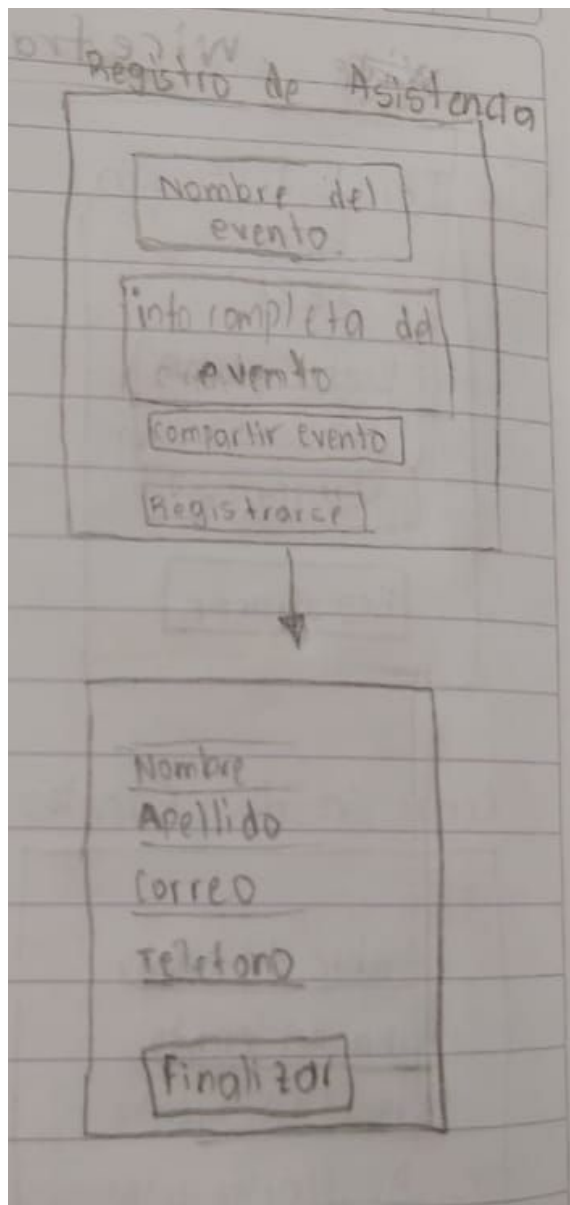 Registro de Asistencia
Nombre del
evento
info completa del
evento
compartir evento
Registrarce
Nombre
Apellido
Correo
Telefono
Finalizar